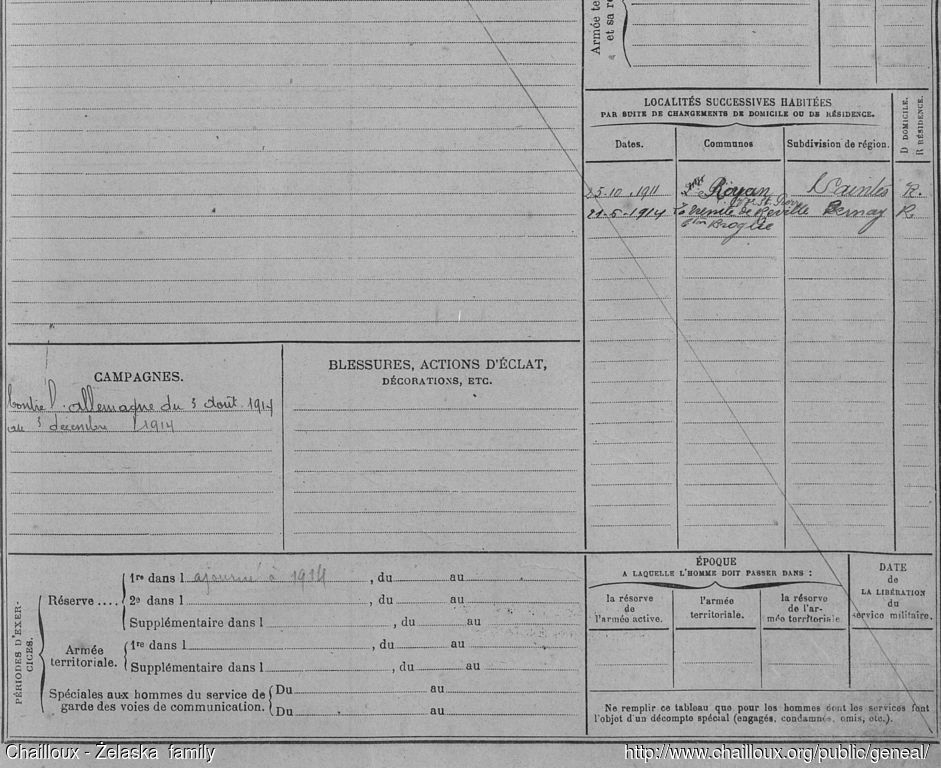 Armée te
et sa ré
LOCALITÉS SUCCESSIVES HABITÉES
PAR SUITE DE CHANGEMENTS DE DOMICILE OU DE RÉSIDENCE.
D DOMICILE.
R RÉSIDENCE.
Dates. Communes Subdivision de région.
25-10.1911 Royan Saintes R.
21-5-1914 de Bernay R
Broglie
CAMPAGNES.
Contre l'Allemagne du 3 août 1914
au 3 décembre 1914
BLESSURES, ACTIONS D'ÉCLAT,
DÉCORATIONS, ETC.
PÉRIODES D'EXER-
CICES.
Réserve .... 1re dans l ajourné à 1914 , du au
2e dans l , du au
Supplémentaire dans l , du au
Armée
territoriale. 1re dans l , du au
Supplémentaire dans l , du au
Spéciales aux hommes du service de
garde des voies de communication. Du au
Du au
ÉPOQUE
A LAQUELLE L'HOMME DOIT PASSER DANS :
la réserve
de
l'armée active.
l'armée
territoriale.
la réserve
de l'ar-
mée territoriale.
DATE
de
LA LIBÉRATION
du
service militaire.
Ne remplir ce tableau que pour les hommes dont les services font
l'objet d'un décompte spécial (engagés, condamnés, omis, etc.).
Chailloux - Żelaska family
http://www.chailloux.org/public/geneal/